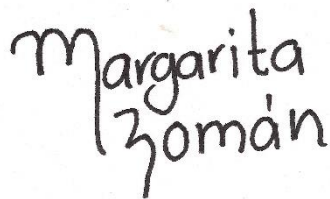 Margarita
Román